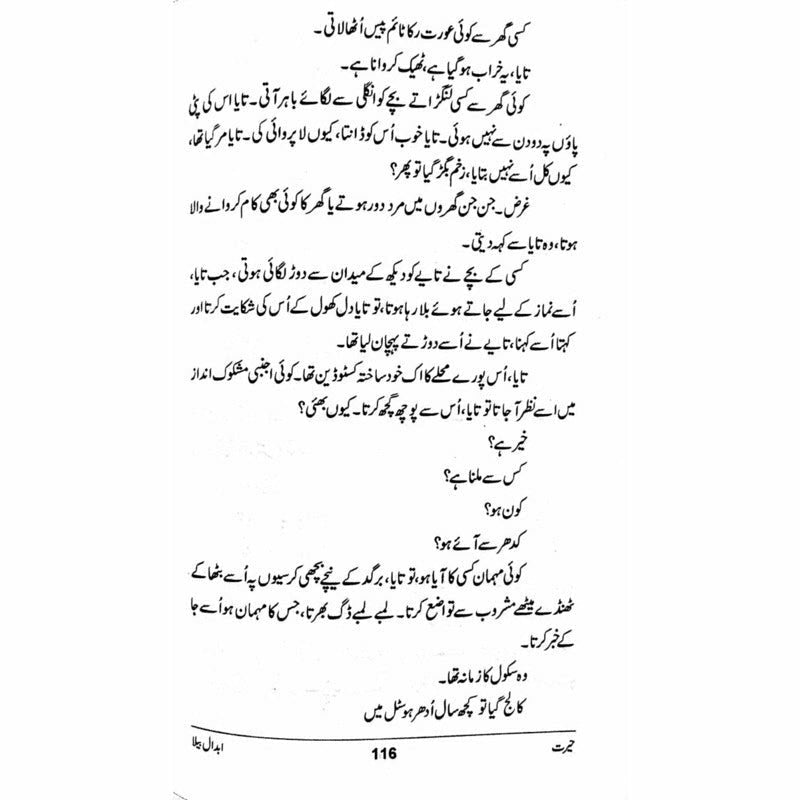 کسی گھر سے کوئی عورت رکا ٹائم پیس اُٹھا لاتی۔
تایا، یہ خراب ہو گیا ہے، ٹھیک کروانا ہے۔
کوئی گھر سے کسی لنگڑاتے بچے کو انگلی سے لگائے باہر آتی۔ تایا اس کی پٹی
پاؤں پہ دو دن سے نہیں ہوئی۔ تایا خوب اُس کو ڈانتا، کیوں لاپروائی کی۔ تایا مر گیا تھا،
کیوں کل اُسے نہیں بتایا، زخم بگڑ گیا تو پھر؟
غرض۔ جن جن گھروں میں مرد دور ہوتے یا گھر کا کوئی بھی کام کروانے والا
ہوتا، وہ تایا سے کہہ دیتی۔
کسی کے بچے نے تایے کو دیکھ کے میدان سے دوڑ لگائی ہوتی، جب تایا،
اُسے نماز کے لیے جاتے ہوئے بلا رہا ہوتا، تو تایا دل کھول کے اُس کی شکایت کرتا اور
کہتا اُسے کہنا، تایے نے اُسے دوڑتے پہچان لیا تھا۔
تایا، اُس پورے محلے کا اک خود ساختہ کسٹوڈین تھا۔ کوئی اجنبی مشکوک انداز
میں اسے نظر آ جاتا تو تایا، اُس سے پوچھ گچھ کرتا۔ کیوں بھئی؟
خیر ہے؟
کس سے ملنا ہے؟
کون ہو؟
کدھر سے آئے ہو؟
کوئی مہمان کسی کا آیا ہو، تو تایا، برگد کے نیچے بچھی کرسیوں پہ اُسے بٹھا کے
ٹھنڈے میٹھے مشروب سے تواضع کرتا۔ لمبے لمبے ڈگ بھرتا، جس کا مہمان ہو اُسے جا
کے خبر کرتا۔
وہ سکول کا زمانہ تھا۔
کالج گیا تو کچھ سال اُدھر ہوسٹل میں
حیرت 116 ابدال بیلا